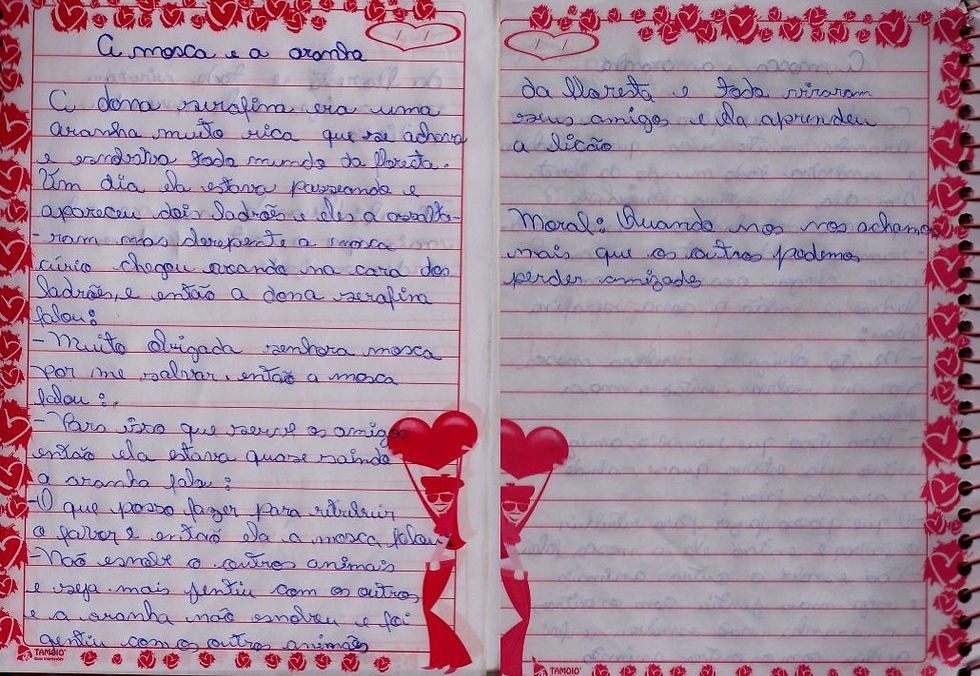 A mosca e a aranha
A dona serafina era uma
aranha muito rica que se achava
e esnobava todo mundo da floresta.
Um dia ela estava passeando e
apareceu dois ladrões e eles a assalta-
-ram mas derepente a mosca
cúrio chegou voando na cara dos
ladrões, e então a dona serafina
falou:
-Muito obrigada senhora mosca
por me salvar. então a mosca
falou:
-Para isso que serve os amigos
então ela estava quase saindo
a aranha falou:
-O que posso fazer para retribuir
o favor e então ela a mosca falou
-Não esnobe o outros animais
e seja mais gentiu com os outros
e a aranha não esnobou e foi
gentiu com os outros animais
TAMOIO
da floresta e todo viraram
seus amigos e ela aprendeu
a lição
Moral: Quando nos nos achamos
mais que os outros podemos
perder amizades
TAMOIO